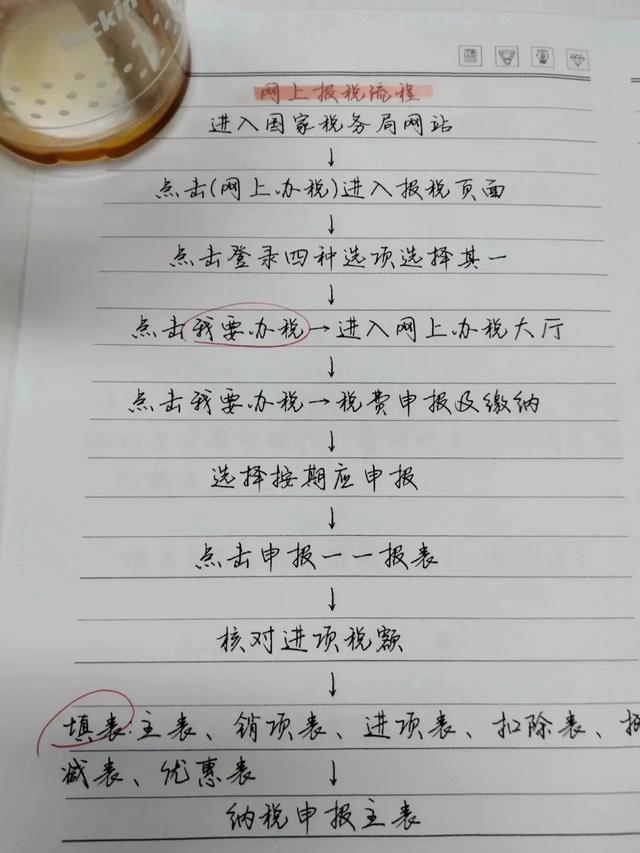 网上报税流程
进入国家税务局网站
↓
点击(网上办税)进入报税页面
↓
点击登录四种选项选择其一
↓
点击我要办税→进入网上办税大厅
↓
点击我要办税→税费申报及缴纳
↓
选择按期应申报
↓
点击申报一一报表
↓
核对进项税额
↓
填表:主表、销项表、进项表、扣除表、
减表、优惠表
↓
纳税申报主表